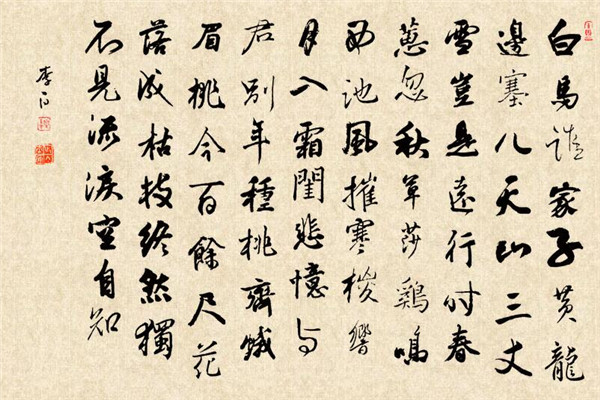 白馬誰家子黄龍
邊塞儿天山三丈
雪豈是遠行时春
蕙忽秋草莎鷄鳴
西池風摧寒椶響
月入霜閨悲憶与
君别年種桃齊蛾
眉桃今百餘尺花
落成枯枝終然獨
不見流淚空自知
李白